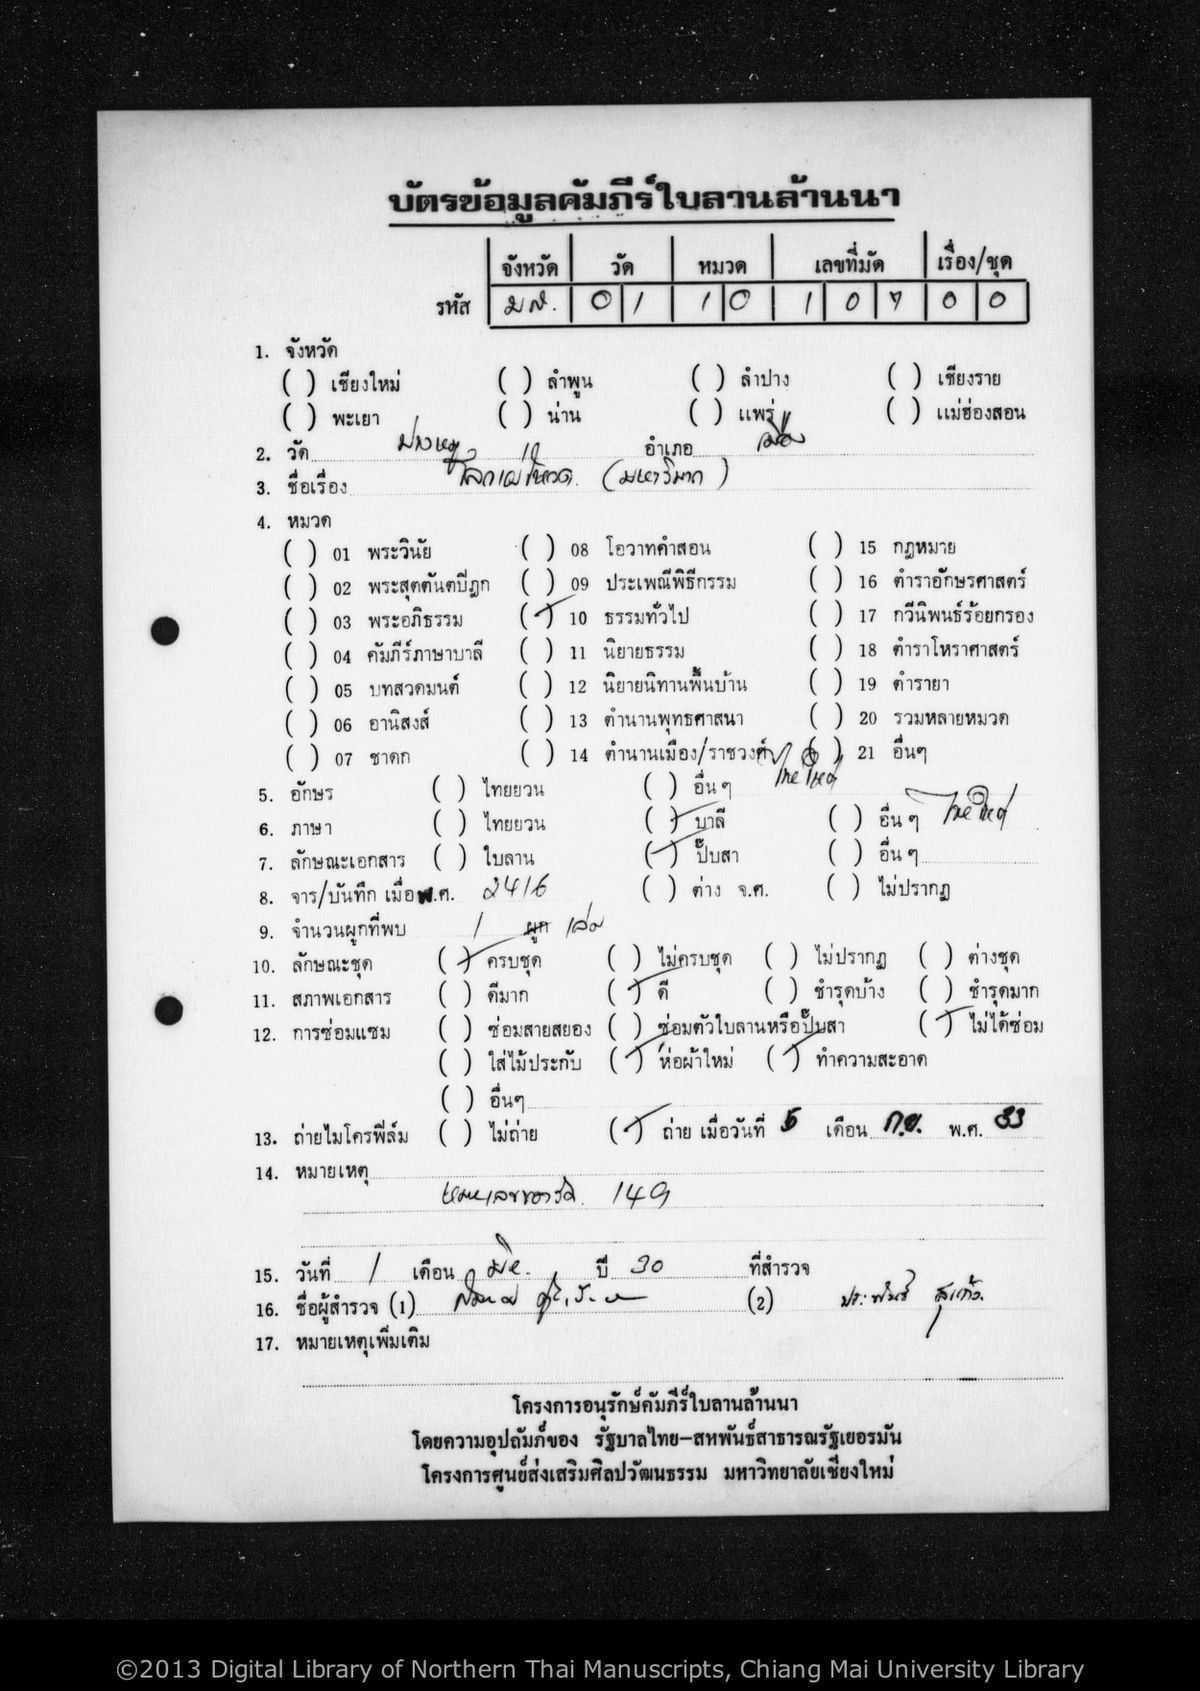 บัตรข้อมูลคัมภีร์ใบลานล้านนา
จังหวัด วัด หมวด เลขที่มัด เรื่อง/ชุด
รหัส มส. 0 1 1 0 1 0 7 0 0
1. จังหวัด
( ) เชียงใหม่ ( ) ลำพูน ( ) ลำปาง ( ) เชียงราย
( ) พะเยา ( ) น่าน ( ) แพร่ ( ) แม่ฮ่องสอน
2. วัด ปางหมู อำเภอ เมือง
3. ชื่อเรื่อง
4. หมวด
( ) 01 พระวินัย ( ) 08 โอวาทคำสอน ( ) 15 กฎหมาย
( ) 02 พระสุตตันตปิฎก ( ) 09 ประเพณีพิธีกรรม ( ) 16 ตำราอักษรศาสตร์
( ) 03 พระอภิธรรม (✓) 10 ธรรมทั่วไป ( ) 17 กวีนิพนธ์ร้อยกรอง
( ) 04 คัมภีร์ภาษาบาลี ( ) 11 นิยายธรรม ( ) 18 ตำราโหราศาสตร์
( ) 05 บทสวดมนต์ ( ) 12 นิยายนิทานพื้นบ้าน ( ) 19 ตำรายา
( ) 06 อานิสงส์ ( ) 13 ตำนานพุทธศาสนา ( ) 20 รวมหลายหมวด
( ) 07 ชาดก ( ) 14 ตำนานเมือง/ราชวงศ์ ( ) 21 อื่นๆ
5. อักษร ( ) ไทยยวน ( ) อื่น ๆ ไทยใหญ่
6. ภาษา ( ) ไทยยวน (✓) บาลี ( ) อื่น ๆ ไทยใหญ่
7. ลักษณะเอกสาร ( ) ใบลาน (✓) ปั๊บสา ( ) อื่น ๆ
8. จาร/บันทึก เมื่อ พ.ศ. 2416 ( ) ต่าง จ.ศ. ( ) ไม่ปรากฏ
9. จำนวนผูกที่พบ 1 ผูก เล่ม
10. ลักษณะชุด (✓) ครบชุด ( ) ไม่ครบชุด ( ) ไม่ปรากฏ ( ) ต่างชุด
11. สภาพเอกสาร ( ) ดีมาก (✓) ดี ( ) ชำรุดบ้าง ( ) ชำรุดมาก
12. การซ่อมแซม ( ) ซ่อมสายสยอง ( ) ซ่อมตัวใบลานหรือปั๊บสา (✓) ไม่ได้ซ่อม
( ) ใส่ไม้ประกับ (✓) ห่อผ้าใหม่ (✓) ทำความสะอาด
( ) อื่นๆ
13. ถ่ายไมโครฟิล์ม ( ) ไม่ถ่าย (✓) ถ่าย เมื่อวันที่ 5 เดือน ก.ย. พ.ศ. 33
14. หมายเหตุ
15. วันที่ 1 เดือน มิย. ปี 30 ที่สำรวจ
16. ชื่อผู้สำรวจ (1) (2) ประพันธ์ สุแก้ว
17. หมายเหตุเพิ่มเติม
โครงการอนุรักษ์คัมภีร์ใบลานล้านนา
โดยความอุปถัมภ์ของ รัฐบาลไทย-สหพันธ์สาธารณรัฐเยอรมัน
โครงการศูนย์ส่งเสริมศิลปวัฒนธรรม มหาวิทยาลัยเชียงใหม่
©2013 Digital Library of Northern Thai Manuscripts, Chiang Mai University Library